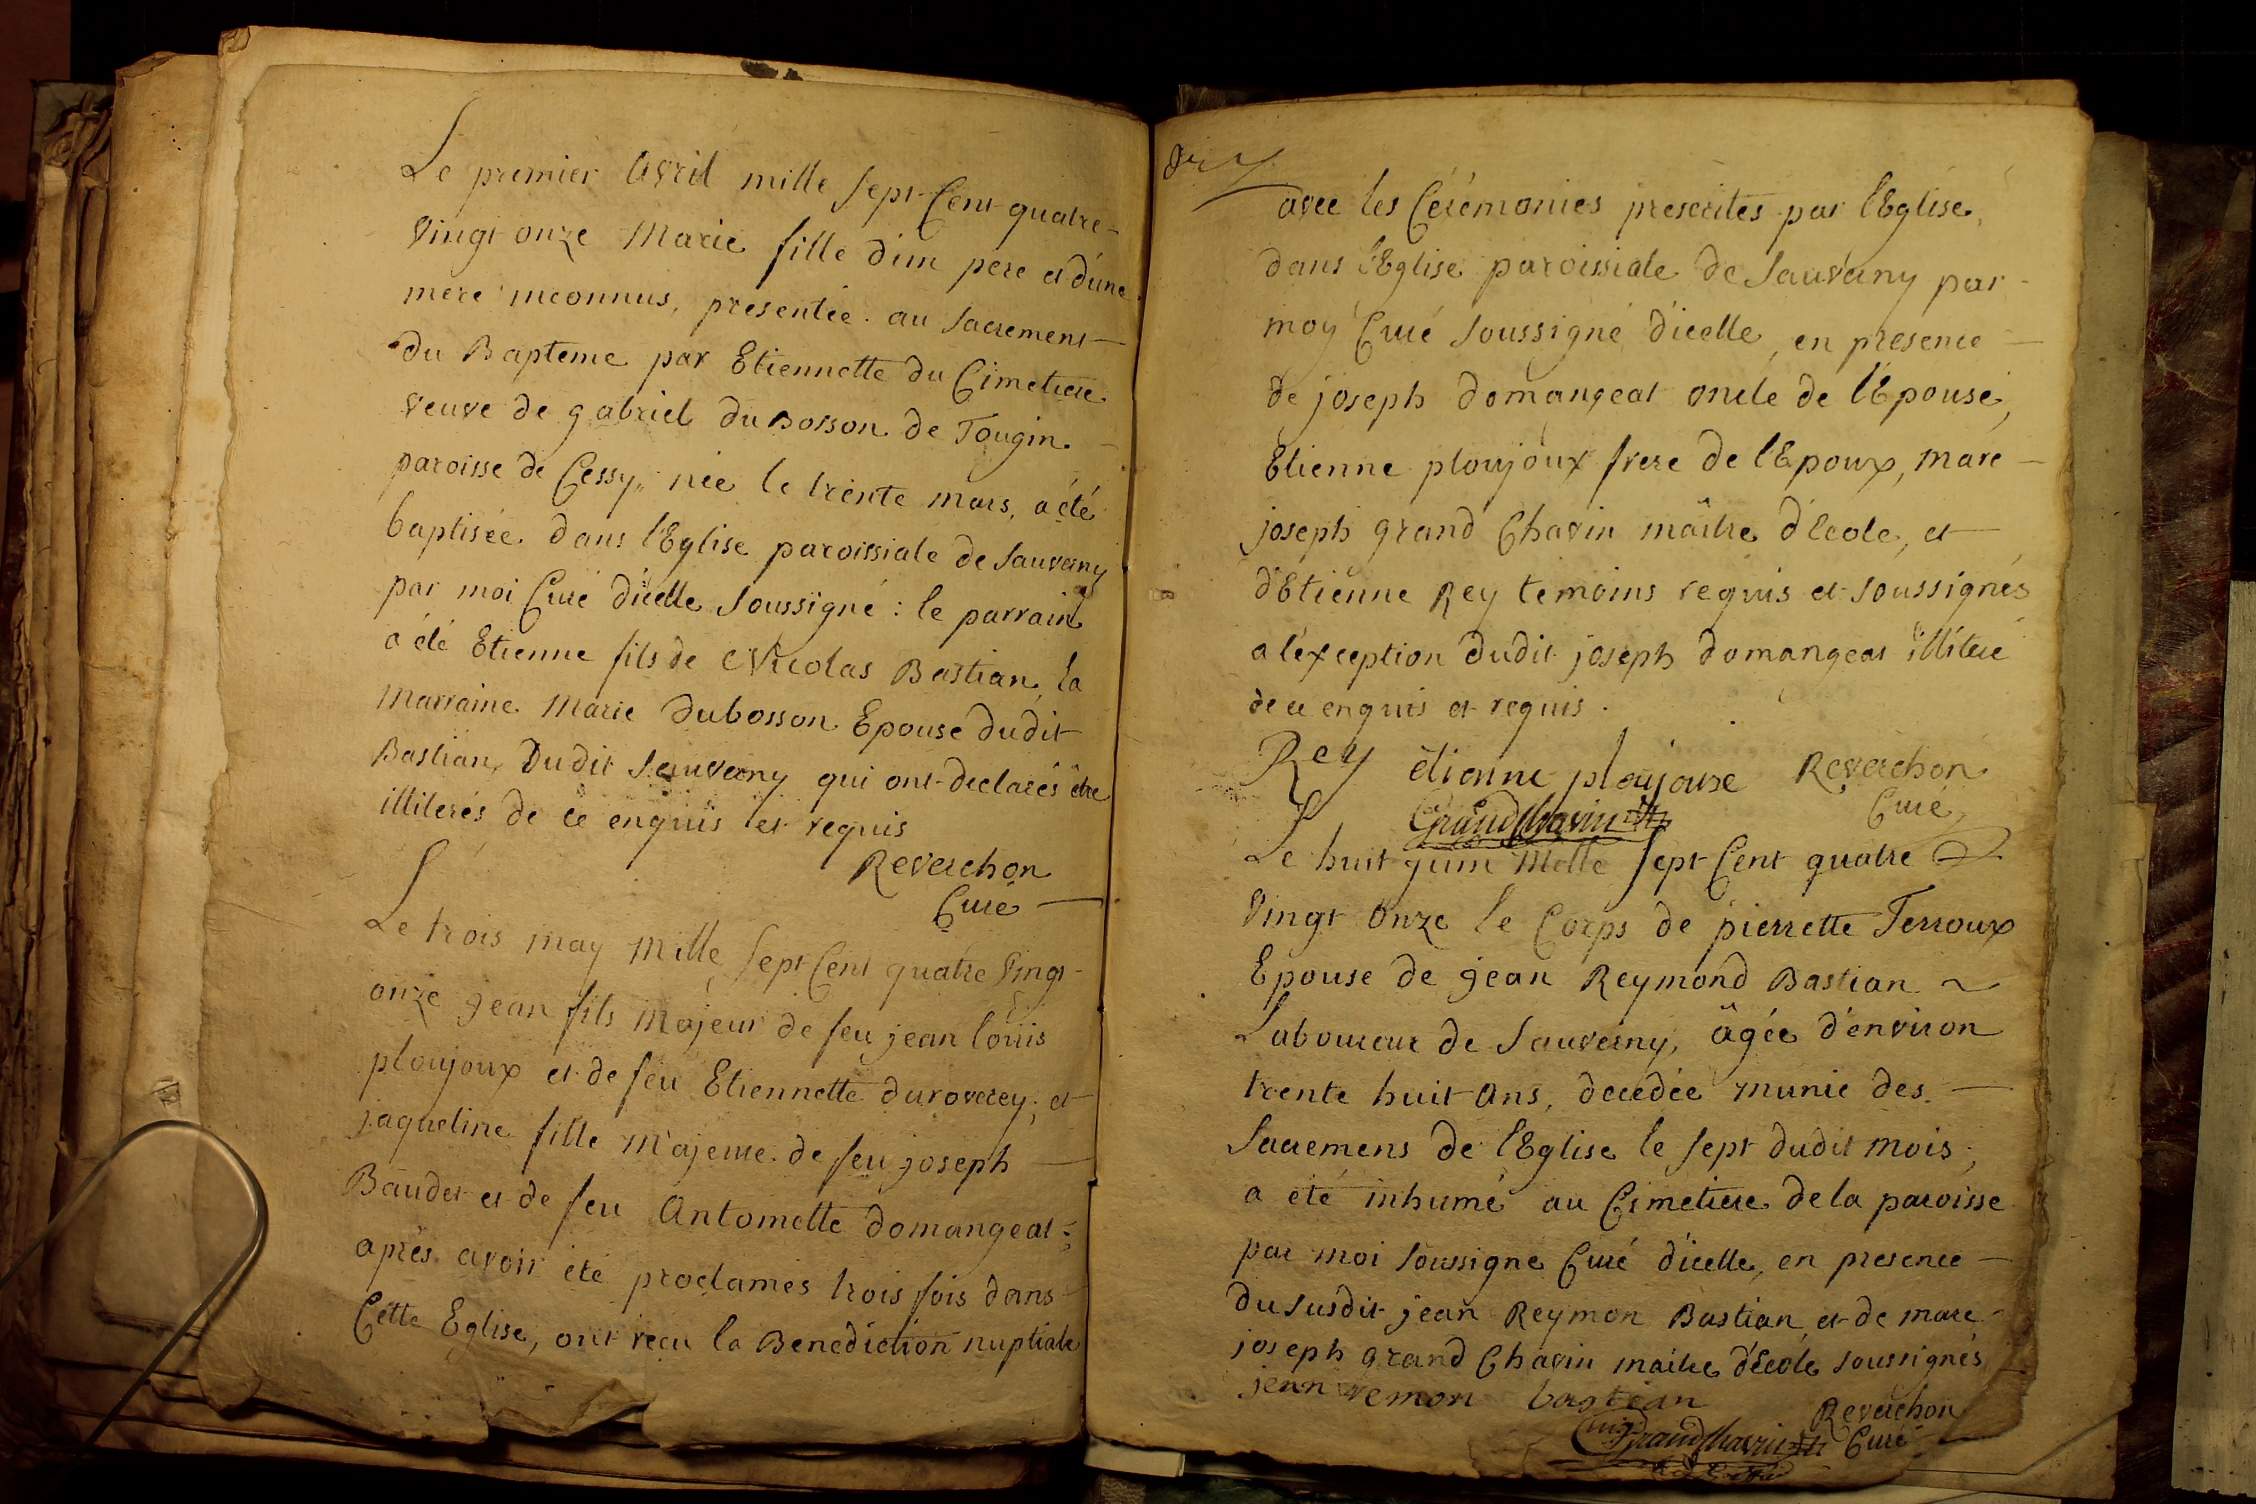 Le premier Avril mille sept Cent quatre-
Vingt onze Marie fille d'un pere et d'une
mere inconnus, presentée au Sacrement
du Bapteme par Etiennette du Cimetiere
veuve de gabriel du Bosson de Tougin
paroisse de Cessy, née le trente mars, a été
baptisée dans l'Eglise paroissiale de Sauverny
par moi Curé d'icelle Soussigné : le parrain
a été Etienne fils de Nicolas Bastian, la
marraine Marie dubosson Epouse dudit
Bastian, dudit Sauverny qui ont declarés être
illiterés de ce enquis et requis
Reverchon
Curé
Le trois may Mille Sept Cent quatre Vingt
onze jean fils Majeur de feu jean louis
ploujoux et de feu Etiennette duroverey; et
jaqueline fille majeure de feu joseph
Baudet et de feu Antoinette domangeat;
après avoir été proclamés trois fois dans
Cette Eglise, ont reçu la Benediction nuptiale
avec les Cérémonies prescrites par l'Eglise,
dans l'Eglise paroissiale de Sauverny par
moy Curé Soussigné d'icelle, en presence
de joseph domangeat oncle de l'Epouse,
Etienne ploujoux frere de l'Epoux, marc
joseph grand Chavin maître d'Ecole, et
d'Etienne Rey temoins requis et Soussignés
a l'exception dudit joseph domangeat illiteré
de ce enquis et requis.
Rey étienne ploujoux Reverchon
GrandChavin Curé
Le huit juin Mille Sept Cent quatre
Vingt Onze le Corps de pierrette Terroux
Epouse de jean Reymond Bastian
Laboureur de Sauverny, âgée d'environ
trente huit Ans, decedée munie des
Sacremens de l'Eglise le Sept dudit Mois,
a été inhumé au Cimetiere de la paroisse
par moi Soussigné Curé d'icelle, en presence
du Susdit jean Reymon Bastian, et de marc
joseph grand Chavin maitre d'Ecole soussignés
jean remon bastian Reverchon
GrandChavin Curé